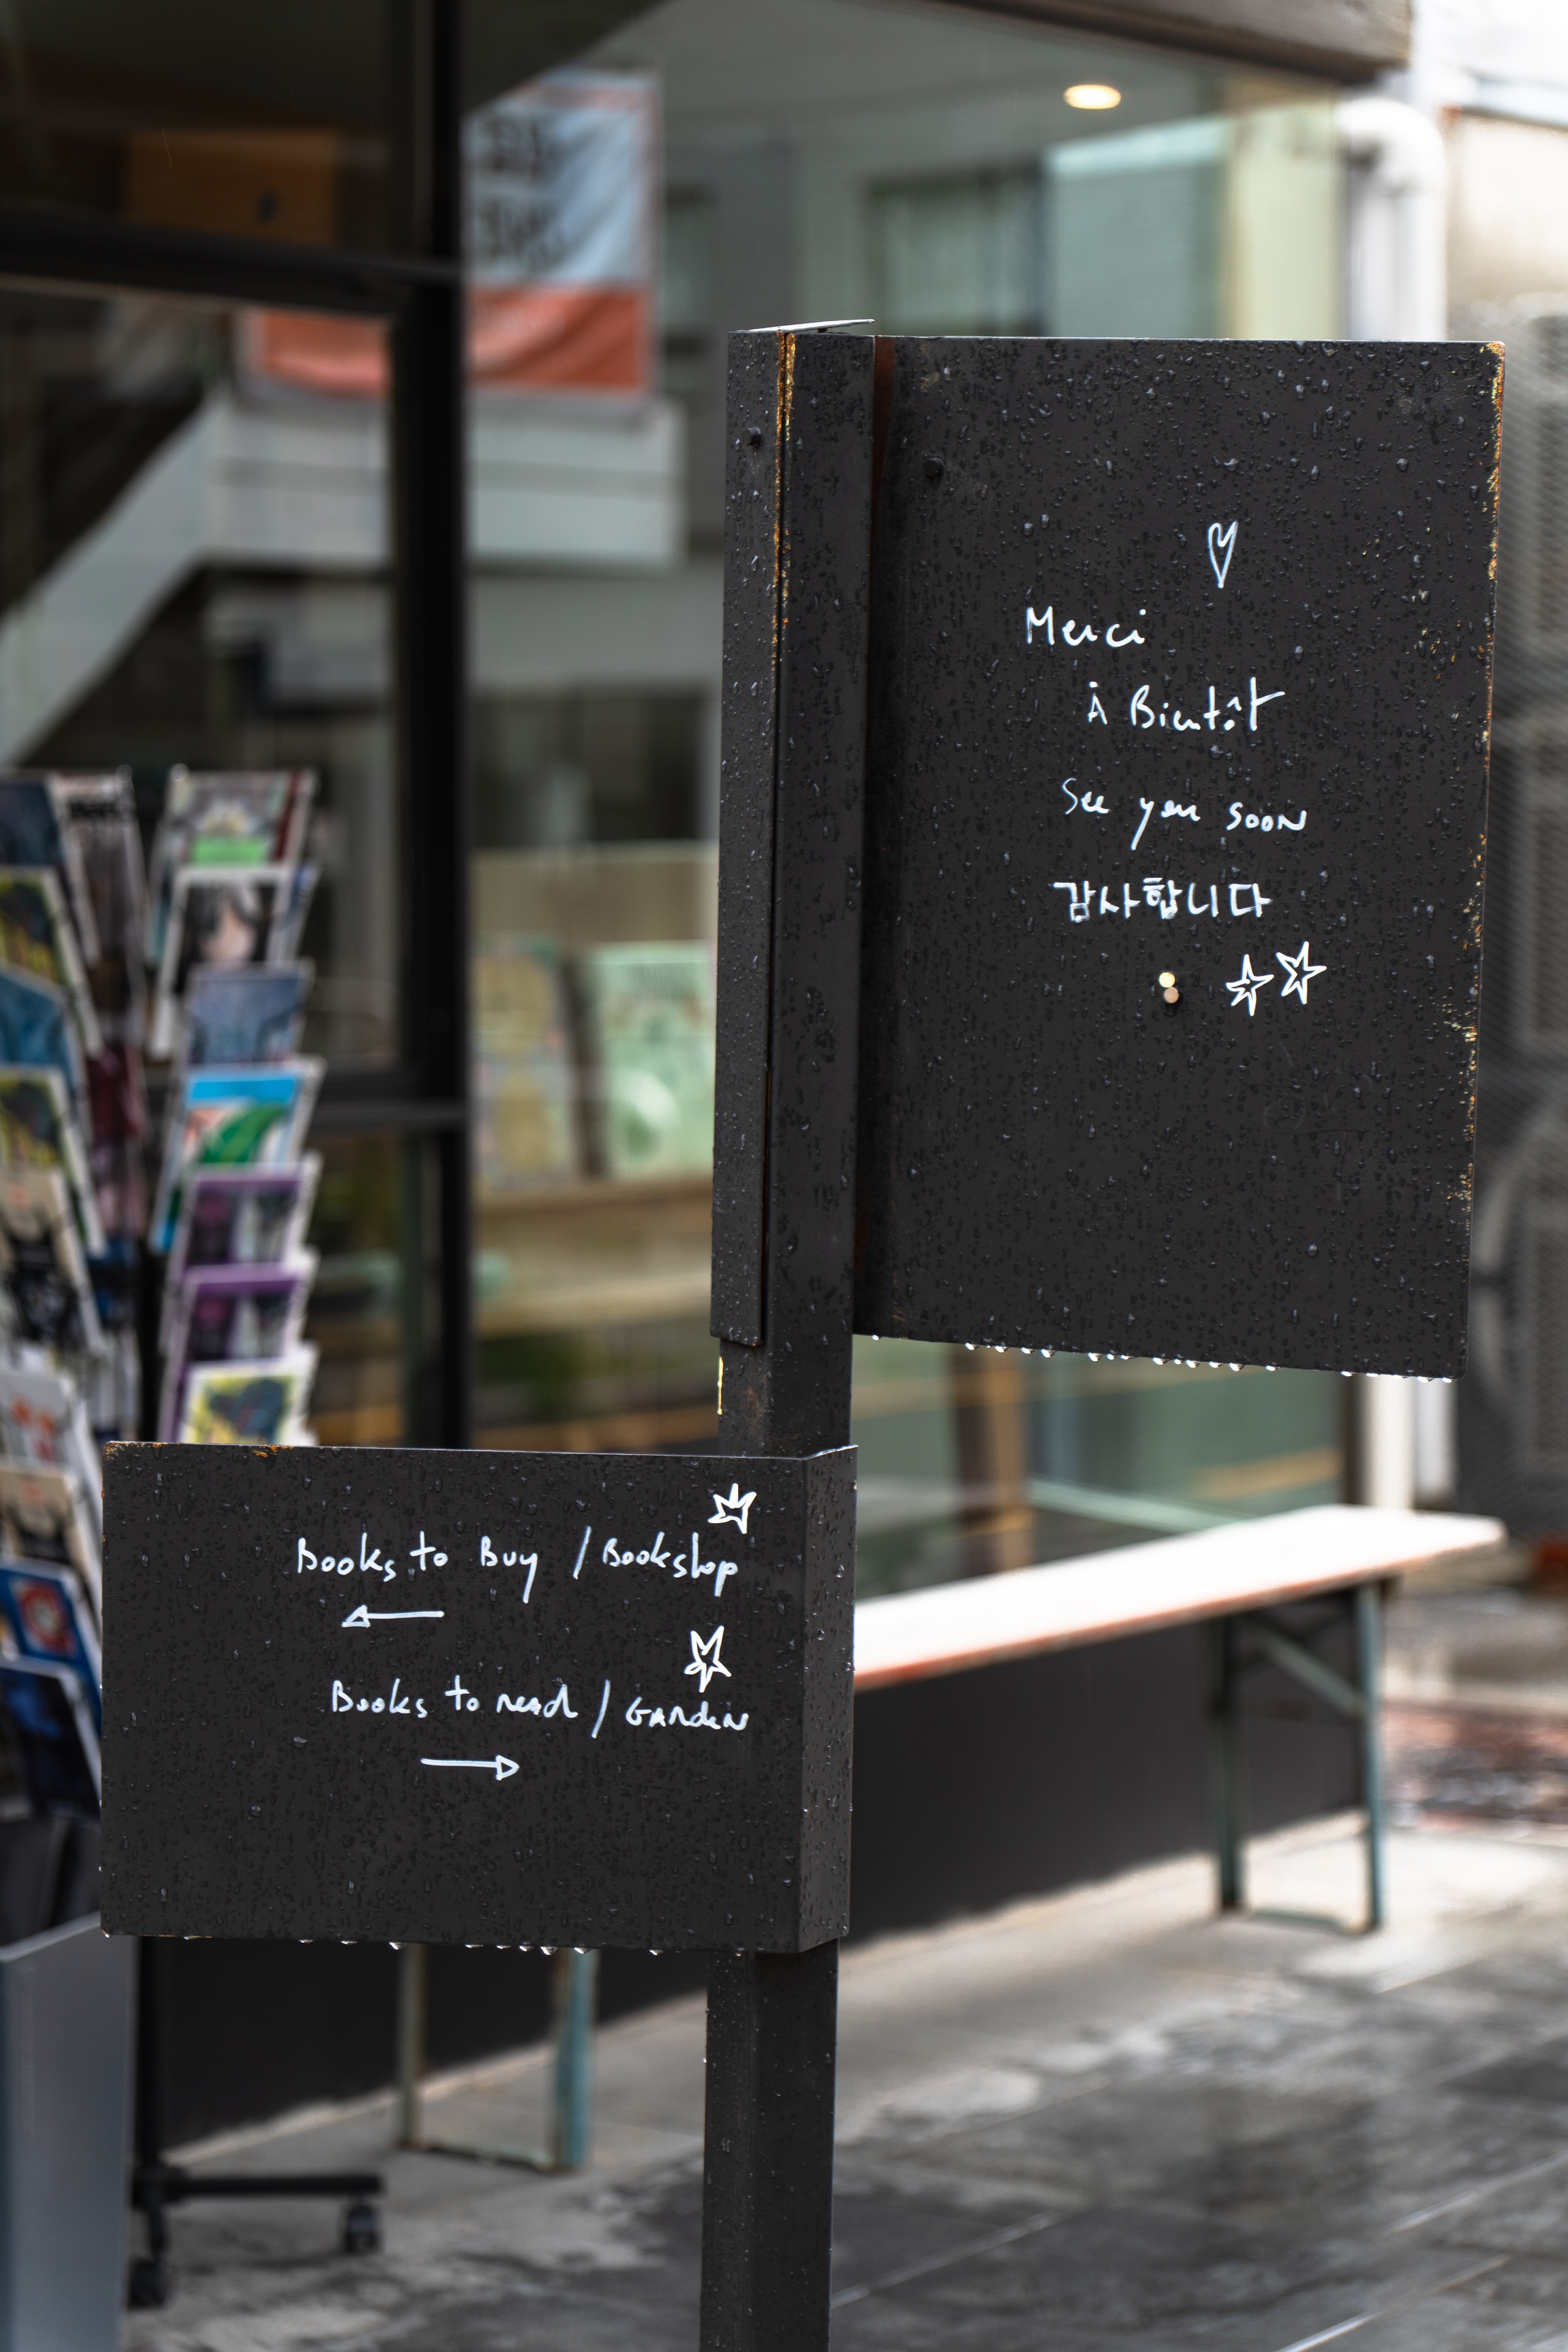 Merci
À Bientôt
See you soon
감사합니다
Books to Buy / Bookshop
Books to read / Garden